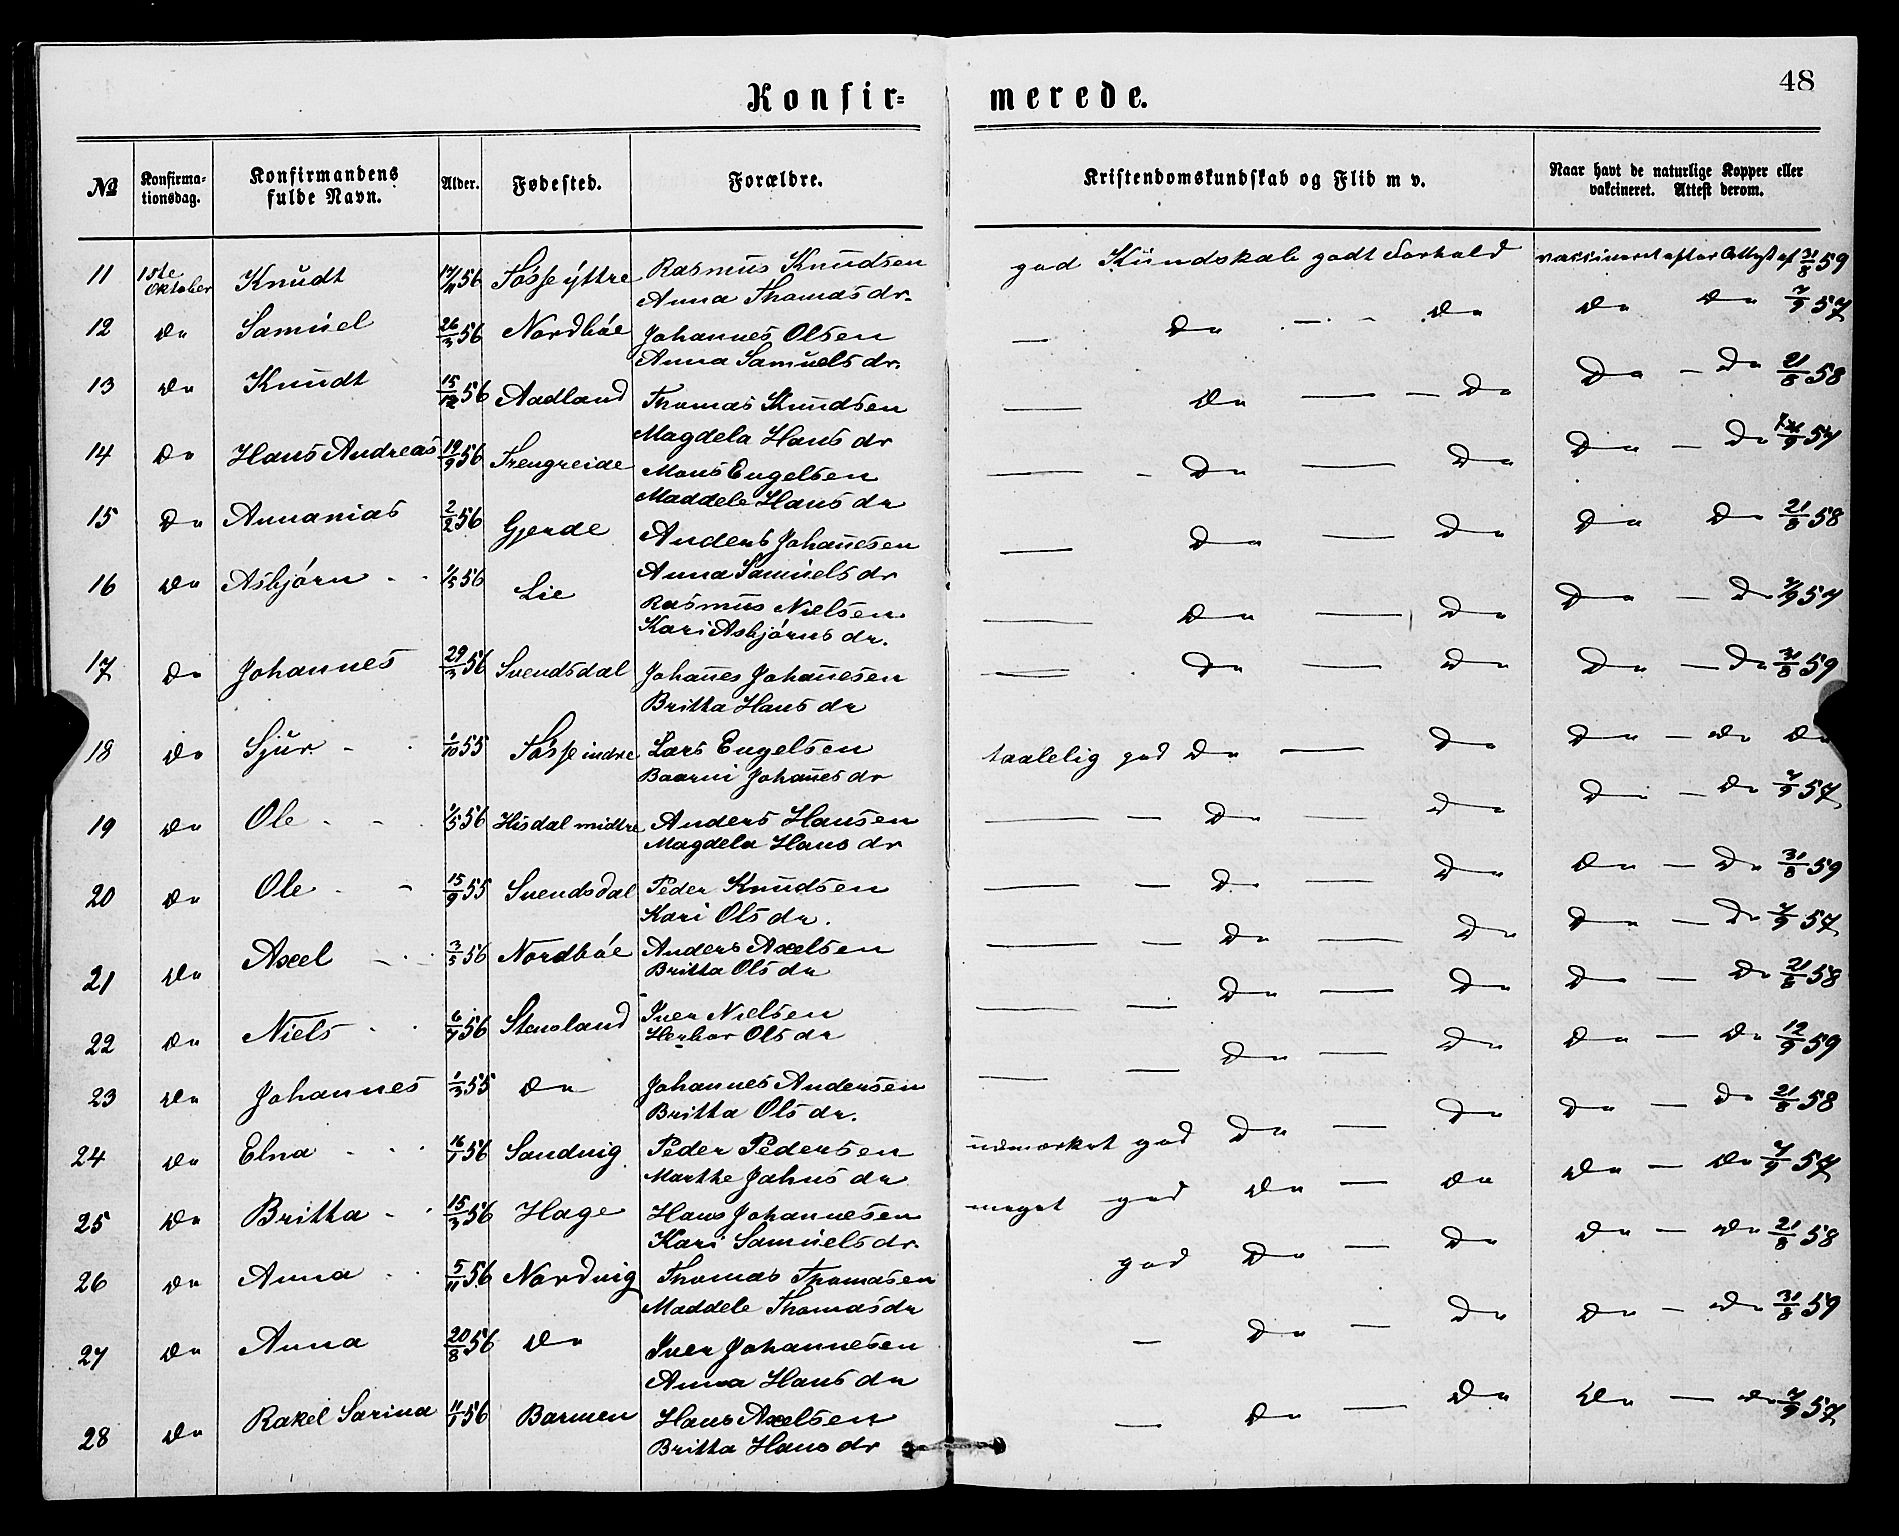 48
Konfir= merede.
№ Konfirma-tionsdag. Konfirmandens fulde Navn. Alder. Fødested. Forældre. Kristendomskundskab og Flid m v. Naar havt de naturlige Kopper eller vakcineret. Attest derom.
11 1ste Oktober Knudt 17/11 56 Søsse ÿttre Rasmus Knudsen god Kundskab godt Forhold vakkineret efter Attest af 31/8 59
Anna Thomasdr.
12 Do Samuel 26/3 56 Nordbøe Johannes Olsen — Do - - Do Do Do 7/9 57
Anna Samuelsdr.
13 Do Knudt 15/12 56 Aadland Thomas Knudsen — Do — — Do Do - Do 21/8 58
Magdela Hans dr
14 Do Hans Andreas 19/9 56 Trengreide Mons Engelsen — - Do — Do Do - Do 7/9 57
Maddele Hans dr
15 Do Annanias 2/2 56 Gjerde Anders Johanesen — Do — Do Do Do 21/8 58
Anna Samuels dr
16 Do Asbjørn - - 1/5 56 Lie Rasmus Nielsen — Do — Do Do - Do 7/9 57
Kari Asbjørns dr.
17 Do Johannes 29/3 56 Svendsdal Johanes Johanesen — Do — Do Do - Do 31/8 59
Britta Hans dr
18 Do Sjur - - 1/10 55 Søsse indre Lars Engelsen taalelig god Do — Do Do - Do Do
Baarni Johanes dr
19 Do Ole - - - 1/5 56 Hisdal midtre Anders Hansen — - Do — Do Do - Do 7/9 57
Magdela Hans dr
20 Do Ole - - 15/9 55 Svendsdal Peder Knudsen — - Do — Do Do - Do 31/8 59
Kari Ols dr.
21 Do Axel - - 3/5 56 Nordbøe Anders Axelsen — - Do — Do Do - Do 7/9 57
Britta Ols dr
22 Do Niels - - 6/7 56 Stavsland Iver Nielsen — — Do — Do Do - Do 21/8 58
Herbor Ols dr
23 Do Johannes 1/3 55 Do Johannes Andersen — — Do — Do Do - Do 12/9 59
Britta Ols dr.
24 Do Elna - - - 16/1 56 Sandvig Peder Pedersen udmærket god Do — Do Do - Do 21/8 58
Marthe Johns dr
25 Do Britta - - 15/3 56 Hage Hans Johannesen meget god Do — Do Do - Do 7/9 57
Kari Samuels dr.
26 Do Anna - - 5/11 56 Nordvig Thomas Thomasen god Do — Do Do - Do 21/8 58
Maddele Thomasdr
27 Do Anna 20/8 56 Do Iver Johannesen — Do — Do Do - Do 31/8 59
Anna Hans dr
28 Do Rakel Sarina 11/1 56 Barmen Hans Axelsen — Do — Do Do — Do 7/9 57
Britta Hans dr